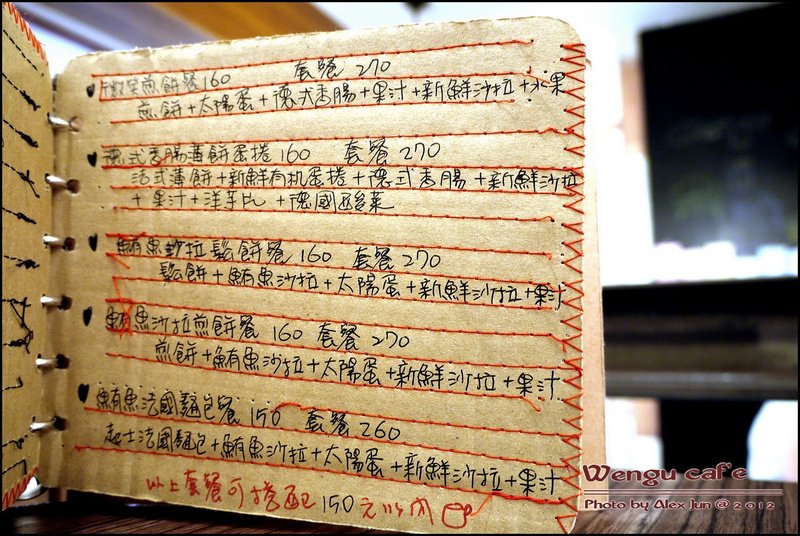 微笑煎餅餐160 套餐270
煎餅+太陽蛋+德式香腸+果汁+新鮮沙拉+水果
德式香腸薄餅蛋捲160 套餐270
法式薄餅+新鮮有机蛋捲+德式香腸+新鮮沙拉
+果汁+洋芋片+德國酸菜
鮪魚沙拉鬆餅餐160 套餐270
鬆餅+鮪魚沙拉+太陽蛋+新鮮沙拉+果汁
鮪魚沙拉煎餅餐160 套餐270
煎餅+鮪魚沙拉+太陽蛋+新鮮沙拉+果汁
鮪魚法國麵包餐150 套餐260
起士法國麵包+鮪魚沙拉+太陽蛋+新鮮沙拉+果汁
以上套餐可搭配150元以內
Wengu caf'e
Photo by Alex Jun @ 2012